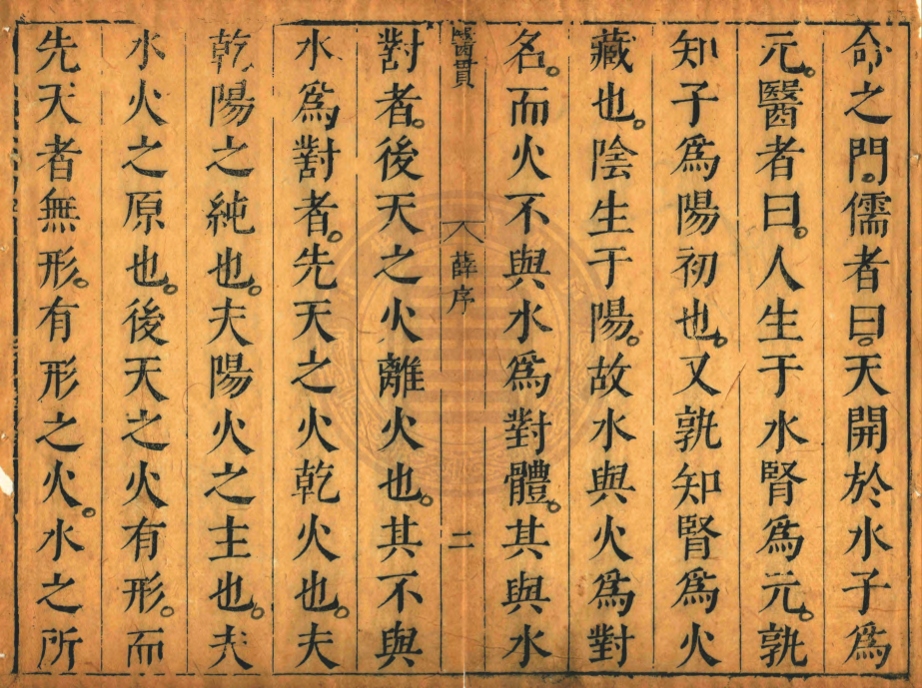 命之門。儒者曰。天開於水子爲
元。醫者曰。人生于水腎爲元。孰
知子爲陽初也。又孰知腎爲火
藏也。陰生于陽。故水與火爲對
名。而火不與水爲對體。其與水
醫貫 薛序 二
對者。後天之火離火也。其不與
水爲對者。先天之火乾火也。夫
乾陽之純也。夫陽火之主也。夫
水火之原也。後天之火有形。而
先天者無形。有形之火。水之所